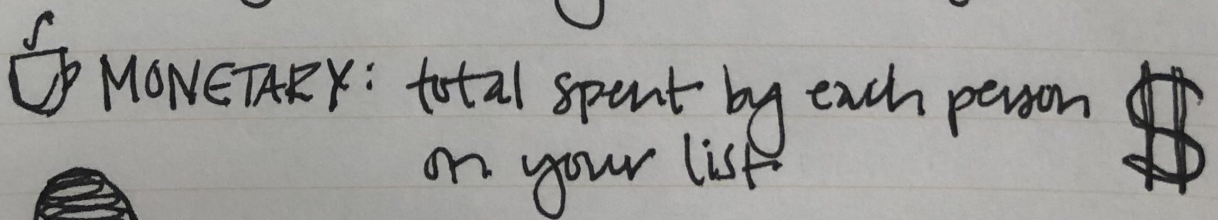 MONETARY: total spent by each person $
on your list.